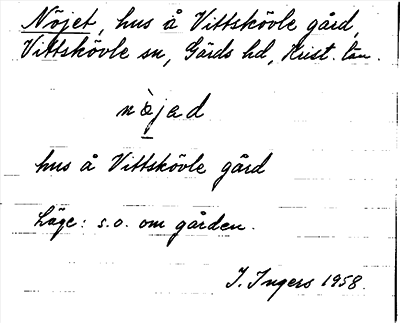 Nöjet, hus å Vittskövle gård,
Vittskövle sn, Gärds hd, Krist. län.
nòjad
hus å Vittskövle gård
Läge: s.o. om gården.
I. Ingers 1958.